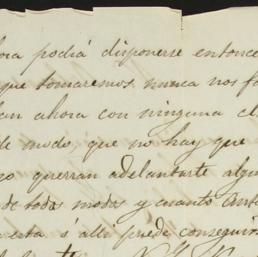 ora podrá disponerse entonce
que tomaremos nunca nos fa
an ahora con ninguna cl
de modo, que no hay que
o querran adelantarte algu
de todas modos y cuanto ant
esta s' alli puede conseguir